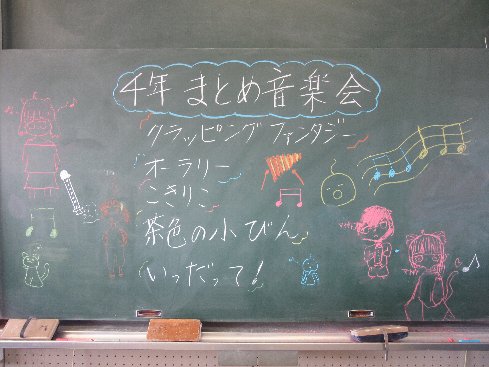 4年 まとめ音楽会
クラッピングファンタジー
オーラリー
こきりこ
茶色の小びん
いつだって!